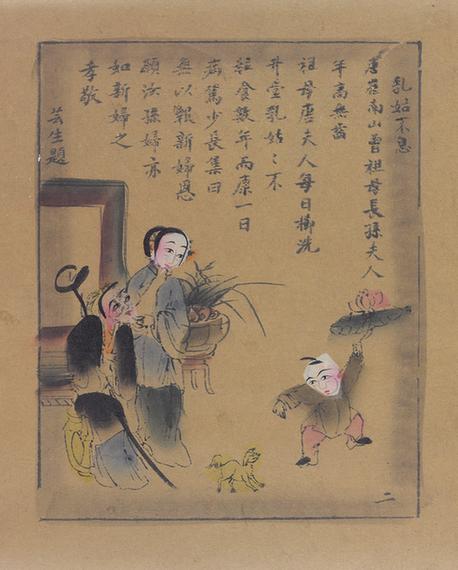 乳姑不怠
唐崔南山曾祖母長孫夫人
年高無齒
祖母唐夫人每日櫛洗
升堂乳姑姑不
粒食數年而康一日
病篤少長集曰
無以報新婦恩
願汝孫婦亦
如新婦之
孝敬
芸生題
二